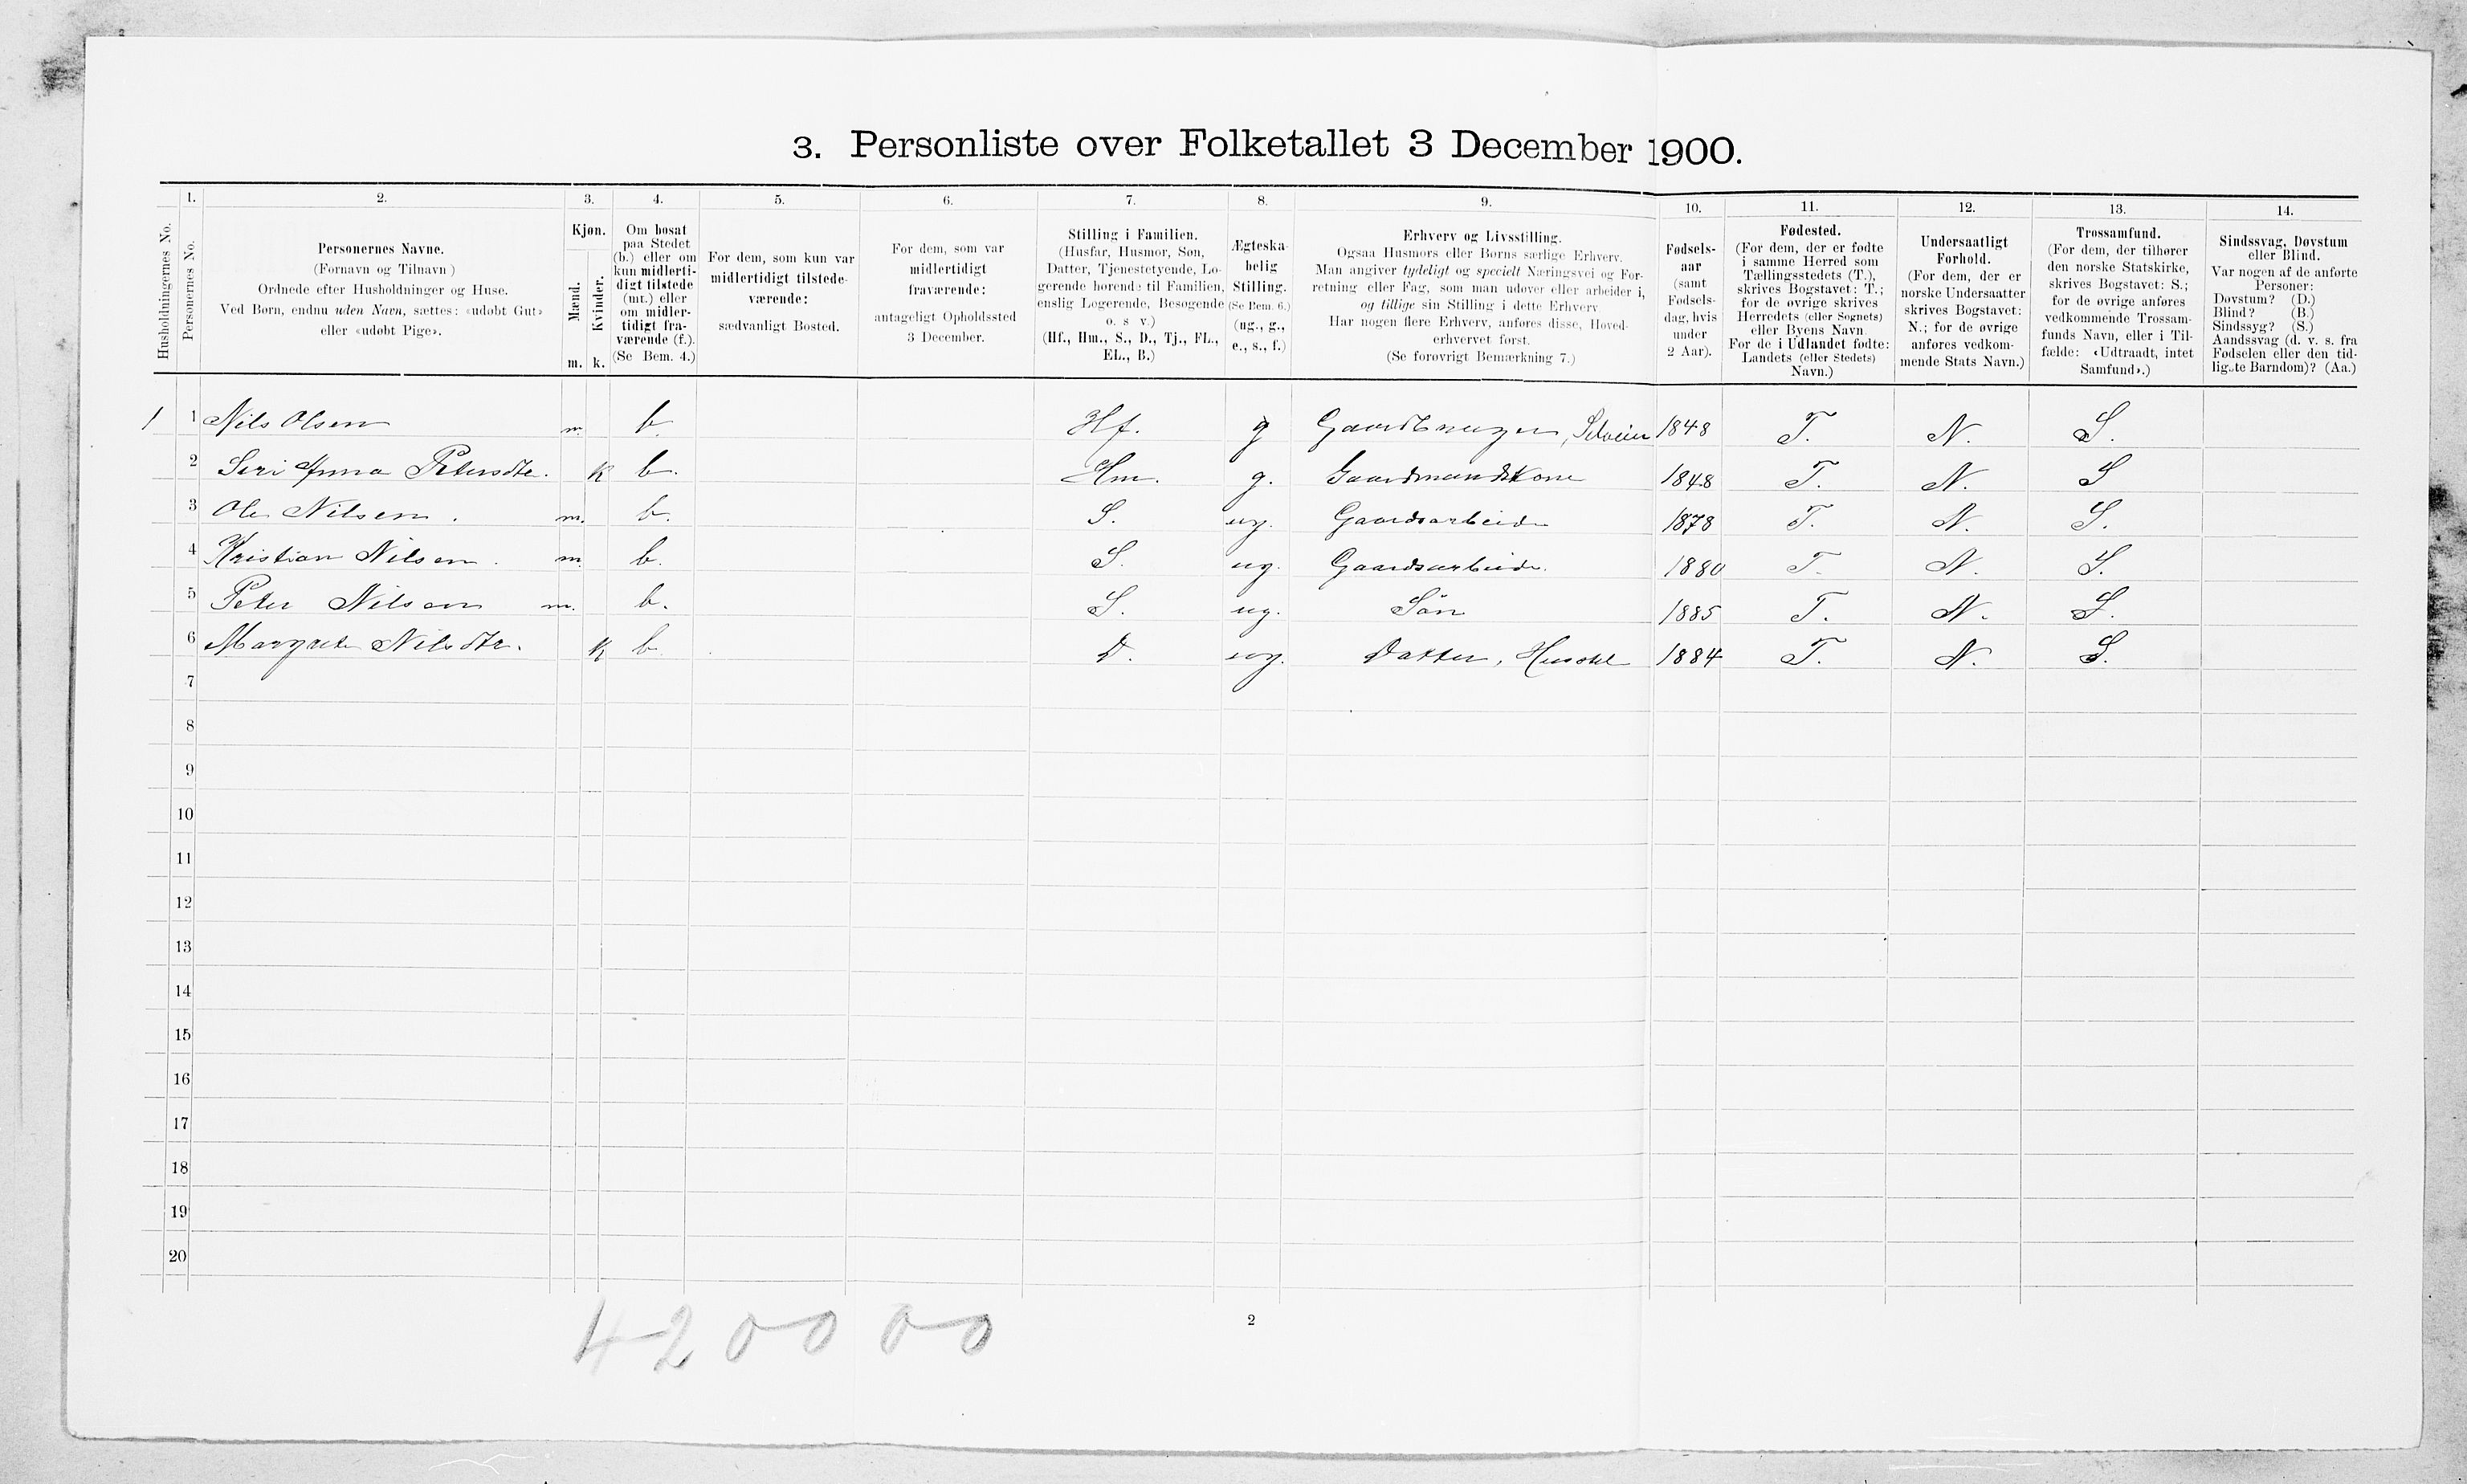 3. Personliste over Folketallet 3 December 1900.
1. 2. 3. 4. 5. 6. 7. 8. 9. 10. 11. 12. 13. 14.
Husholdningernes No.
Personernes No.
Personernes Navne.
(Fornavn og Tilnavn)
Ordnede efter Husholdninger og Huse.
Ved Børn, endnu uden Navn, sættes: «udøbt Gut»
eller «udøbt Pige».
Kjøn.
Mænd.
Kvinder.
m. k.
Om bosat
paa Stedet
(b.) eller om
kun midlerti-
digt tilstede
(mt.) eller
om midler-
tidigt fra-
værende (f.).
(Se Bem. 4.)
For dem, som kun var
midlertidigt tilstede-
værende:
sædvanligt Bosted.
For dem, som var
midlertidigt
fraværende:
antageligt Opholdssted
3 December.
Stilling i Familien.
(Husfar, Husmor, Søn,
Datter, Tjenestetyende, Lo-
gerende hørende til Familien,
enslig Logerende, Besøgende
o. s v.)
(Hf., Hm., S., D., Tj., FL.,
EL., B.)
Ægteska-
belig
Stilling.
(Se Bem. 6.)
(ug., g.,
e., s., f.)
Erhverv og Livsstilling.
Ogsaa Husmors eller Børns særlige Erhverv.
Man angiver tydeligt og specielt Næringsvei og For-
retning eller Fag, som man udøver eller arbeider i,
og tillige sin Stilling i dette Erhverv
Har nogen flere Erhverv, anføres disse, Hoved-
erhvervet først.
(Se forøvrigt Bemærkning 7.)
Fødsels-
aar
(samt
Fødsels-
dag, hvis
under
2 Aar).
Fødested.
(For dem, der er fødte
i samme Herred som
Tællingsstedets (T.),
skrives Bogstavet: T.;
for de øvrige skrives
Herredets (eller Sognets)
eller Byens Navn
For de i Udlandet fødte:
Landets (eller Stedets)
Navn.)
Undersaatligt
Forhold.
(For dem, der er
norske Undersaatter
skrives Bogstavet:
N.; for de øvrige
anføres vedkom-
mende Stats Navn.)
Trossamfund.
(For dem, der tilhører
den norske Statskirke,
skrives Bogstavet: S.;
for de øvrige anføres
vedkommende Trossam-
funds Navn, eller i Til-
fælde: «Udtraadt, intet
Samfund».)
Sindssvag, Døvstum
eller Blind.
Var nogen af de anførte
Personer:
Døvstum? (D.)
Blind? (B.)
Sindssyg? (S.)
Aandssvag (d. v. s. fra
Fødselen eller den tid-
ligste Barndom)? (Aa.)
1 1 Nils Olsen m. b. Hf. g Gaardbruger, Selveier 1848 T. N. S.
2 Siri Anna Petersdtr. k b. Hm. g. Gaardmandskone 1848 T. N. S
3 Ole Nilsen. m. b. S. ug. Gaardsarbeide 1878 T. N. S.
4 Kristian Nilsen. m. b. S. ug. Gaardsarbeide. 1880 T. N. S.
5 Peter Nilsen m. b. S. ug. Sön 1885 T. N. S.
6 Margrete Nilsdtr. k b. D. ug. Datter, 1884 T. N. S.
7
8
9
10
11
12
13
14
15
16
17
18
19
20
420000
2